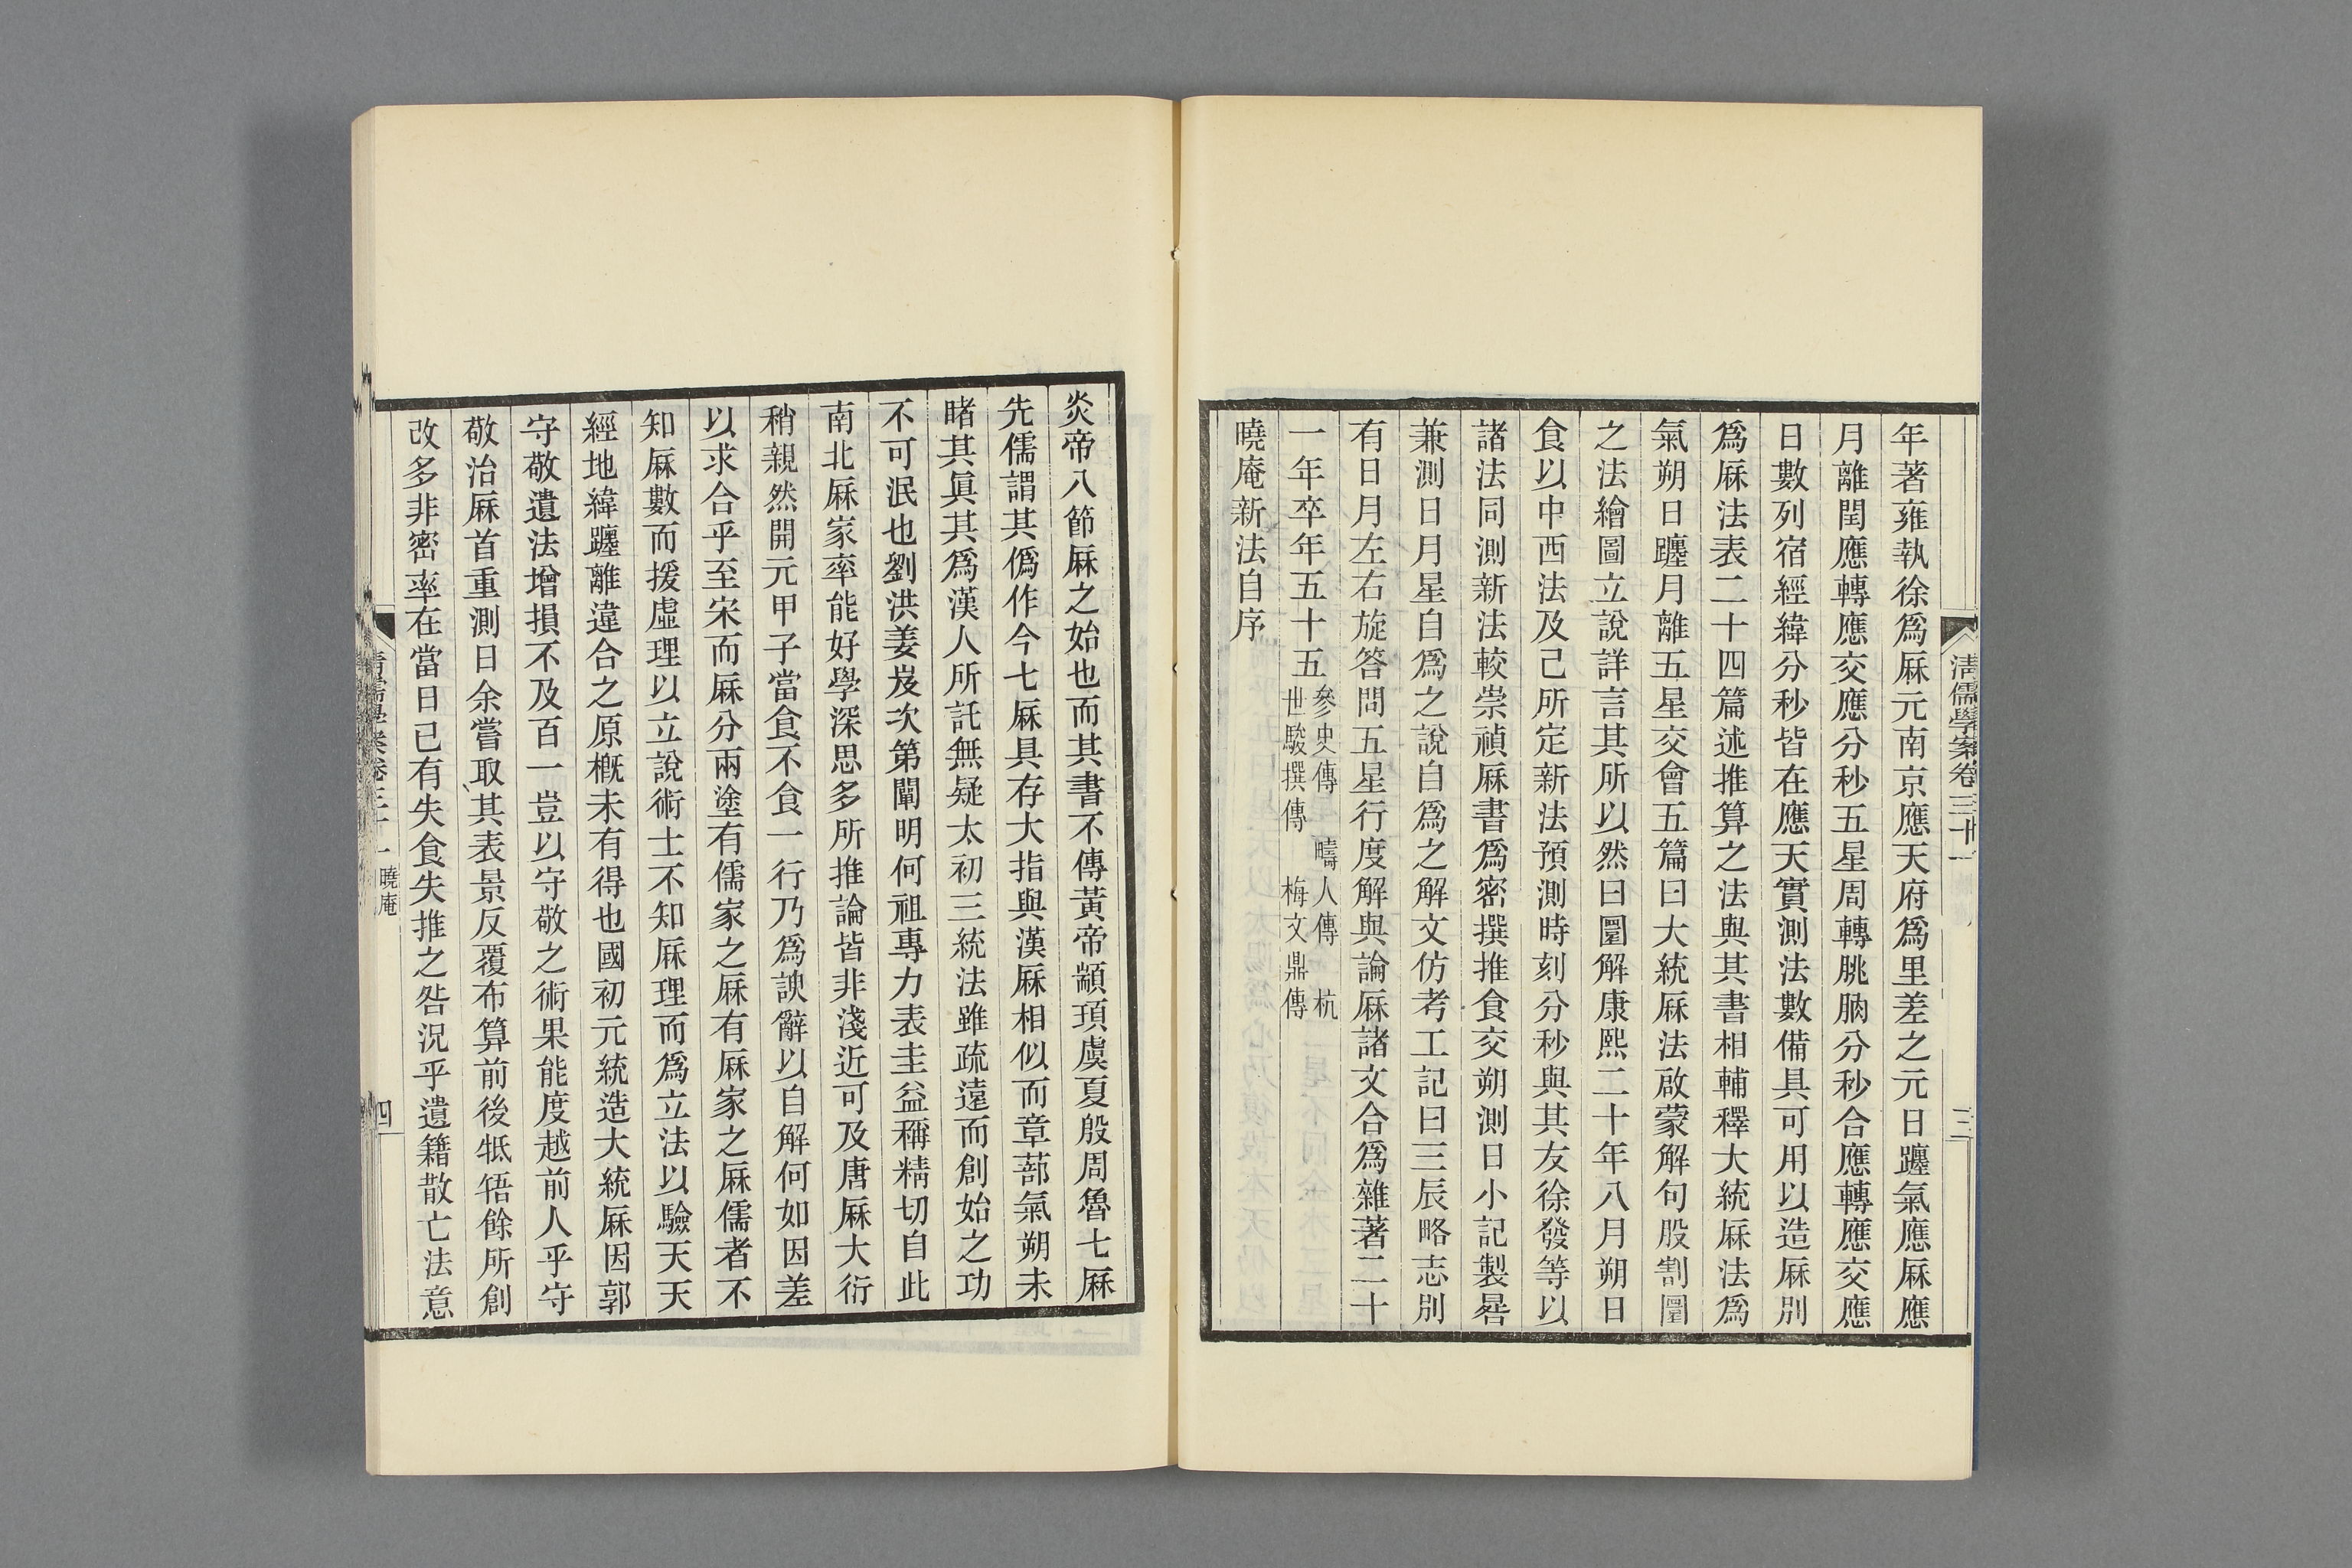 清儒學案卷三十一
三
年著雍執徐爲厤元南京應天府爲里差之元日躔氣應厤應
月離閏應轉應交應分秒五星周轉朓朒分秒合應轉應交應
日數列宿經緯分秒皆在應天實測法數備具可用以造厤別
爲厤法表二十四篇述推算之法與其書相輔釋大統厤法爲
氣朔日躔月離五星交會五篇曰大統厤法啟蒙解句股割圜
之法繪圖立說詳言其所以然曰圜解康熙二十年八月朔日
食以中西法及己所定新法預測時刻分秒與其友徐發等以
諸法同測新法較崇禎厤書爲密撰推食交朔測日小記製晷
兼測日月星自爲之說自爲之解文仿考工記曰三辰晷志別
有日月左右旋答問五星行度解與論厤諸文合爲雜著二十
一年卒年五十五
參史傳 疇人傳 杭
世駿撰傳 梅文鼎傳
曉庵新法自序
炎帝八節厤之始也而其書不傳黃帝顓頊虞夏殷周魯七厤
先儒謂其僞作今七厤具存大指與漢厤相似而章蔀氣朔未
睹其眞其爲漢人所託無疑太初三統法雖疏遠而創始之功
不可泯也劉洪姜岌次第闡明何祖專力表圭益稱精切自此
南北厤家率能好學深思多所推論皆非淺近可及唐厤大衍
稍親然開元甲子當食不食一行乃爲諛辭以自解何如因差
以求合乎至宋而厤分兩塗有儒家之厤有厤家之厤儒者不
知厤數而援虛理以立說術士不知厤理而爲立法以驗天天
經地緯躔離違合之原槪未有得也國初元統造大統厤因郭
守敬遺法增損不及百一豈以守敬之術果能度越前人乎守
敬治厤首重測日余嘗取其表景反覆布算前後牴牾餘所創
改多非密率在當日已有失食失推之咎況乎遺籍散亡法意
清儒學案卷三十一 曉庵
四